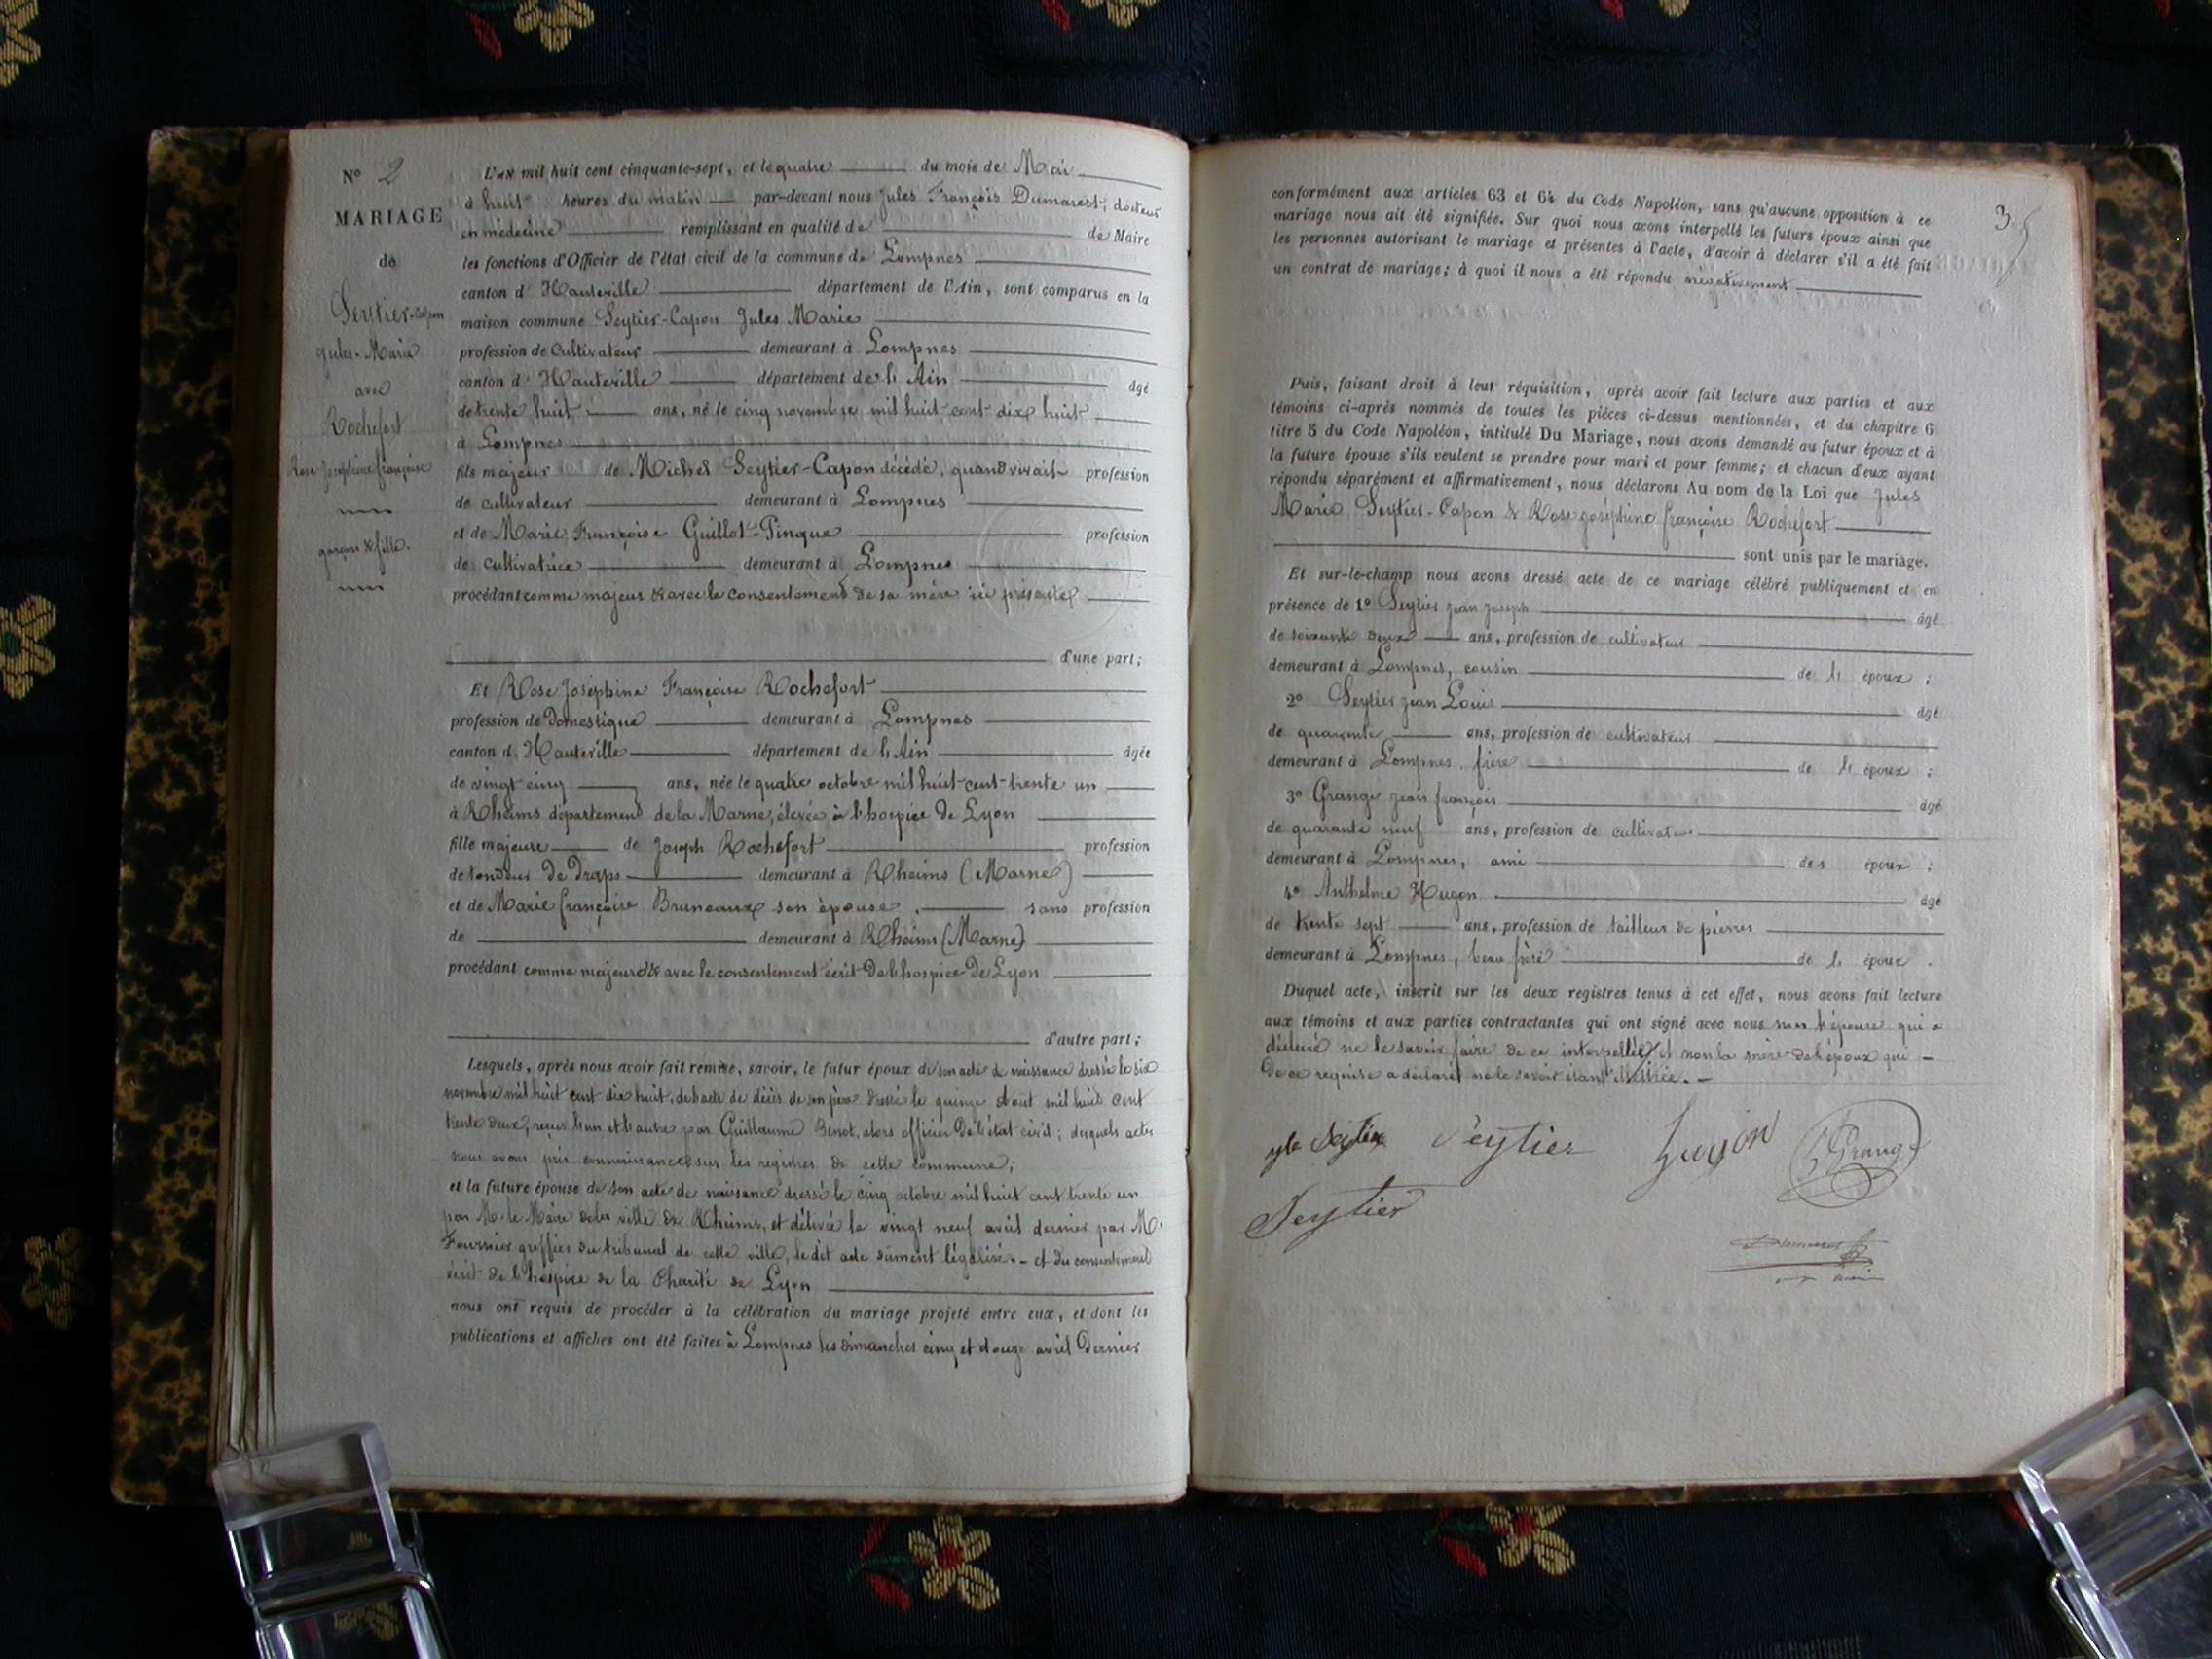 N° 2
MARIAGE
de
Seytier-Capon
Jules-Marie
avec
Rochefort
Rose Joséphine françoise
garçon & fille.
L'an mil huit cent cinquante-sept, et le quatre du mois de Mai
à huit heures du matin par-devant nous Jules François Dumarest, docteur
en médecine remplissant en qualité de de Maire
les fonctions d'Officier de l'état civil de la commune de Lompnes
canton d'Hauteville département de l'Ain, sont comparus en la
maison commune Seytier-Capon Jules Marie
profession de Cultivateur demeurant à Lompnes
canton d'Hauteville département de l'Ain âgé
de trente huit ans, né le cinq novembre mil huit cent dix huit
à Lompnes
fils majeur de Michel Seytier-Capon décédé, quand vivait profession
de cultivateur demeurant à Lompnes
et de Marie Françoise Guillot-Pingue profession
de cultivatrice demeurant à Lompnes
procédant comme majeur & avec le consentement de sa mère ici présente
d'une part;
Et Rose Joséphine Françoise Rochefort
profession de Domestique demeurant à Lompnes
canton d'Hauteville département de l'Ain âgée
de vingt cinq ans, née le quatre octobre mil huit-cent-trente un
à Rheims département de la Marne, élevée à l'hospice de Lyon
fille majeure de Joseph Rochefort profession
de tondeur de Draps demeurant à Rheims (Marne)
et de Marie françoise Bruneaux son épouse, sans profession
de demeurant à Rheims (Marne)
procédant comme majeure & avec le consentement écrit de l'hospice de Lyon
d'autre part;
Lesquels, après nous avoir fait remise, savoir, le futur époux de son acte de naissance dressé le six
novembre mil huit cent dix huit, de l'acte de décès de son père dressé le quinze Aout mil huit cent
trente deux, reçus l'un et l'autre par Guillaume Benot, alors officier de l'état civil; desquels actes
nous avons pris connaissance sur les registres de cette commune;
et la future épouse de son acte de naissance dressé le cinq octobre mil huit cent trente un
par M. le Maire de la ville de Rheims, et délivré le vingt neuf avril dernier par M.
Fournier greffier du tribunal de cette ville, le dit acte dûment légalisé. - et du consentement
écrit de l'hospice de la Charité de Lyon
nous ont requis de procéder à la célébration du mariage projeté entre eux, et dont les
publications et affiches ont été faites à Lompnes les dimanches cinq et douze avril Dernier
3
conformément aux articles 63 et 64 du Code Napoléon, sans qu'aucune opposition à ce
mariage nous ait été signifiée. Sur quoi nous avons interpellé les futurs époux ainsi que
les personnes autorisant le mariage et présentes à l'acte, d'avoir à déclarer s'il a été fait
un contrat de mariage; à quoi il nous a été répondu négativement
Puis, faisant droit à leur réquisition, après avoir fait lecture aux parties et aux
témoins ci-après nommés de toutes les pièces ci-dessus mentionnées, et du chapitre 6
titre 5 du Code Napoléon, intitulé Du Mariage, nous avons demandé au futur époux et à
la future épouse s'ils veulent se prendre pour mari et pour femme; et chacun d'eux ayant
répondu séparément et affirmativement, nous déclarons Au nom de la Loi que Jules
Marie Seytier-Capon & Rose Joséphine françoise Rochefort
sont unis par le mariage.
Et sur-le-champ nous avons dressé acte de ce mariage célébré publiquement et en
présence de 1° Seytier Jean Joseph âgé
de soixante deux ans, profession de cultivateur
demeurant à Lompnes, cousin de l'époux;
2° Seytier Jean Louis âgé
de quarante ans, profession de cultivateur
demeurant à Lompnes frère de l'époux;
3° Grange Jean françois âgé
de quarante neuf ans, profession de cultivateur
demeurant à Lompnes, ami des époux;
4° Anthelme Hugon âgé
de trente sept ans, profession de tailleur de pierres
demeurant à Lompnes, beau frère de l'époux.
Duquel acte, inscrit sur les deux registres tenus à cet effet, nous avons fait lecture
aux témoins et aux parties contractantes qui ont signé avec nous non l'épouse qui a
déclaré ne le savoir faire de ce interpellée, et non la mère de l'époux qui
de ce requise a déclaré ne le savoir étant illétrée.
Seytier Seytier hugon Grange
Seytier
Dumarest